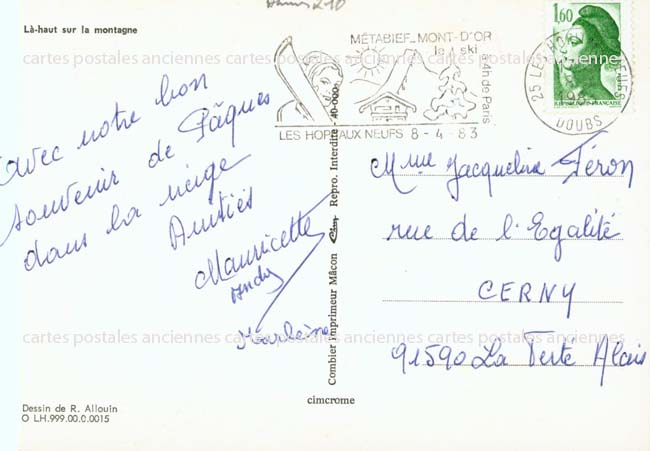 Là-haut sur la montagne
avec notre bon
souvenir de Pâques
dans la neige
Amitiés
Mauricette
Andy
MÉTABIEF_MONT-D'OR
le ski
à 4h de Paris
LES HOPITAUX NEUFS 8-4-83
1,60
REPUBLIQUE FRANCAISE
25 LES HOPITAUX NEUFS
DOUBS
Mme Jacqueline Féron
rue de l'Egalité
CERNY
91590 La Ferté Alais
Combier Imprimeur Mâcon Repro. Interdite - 40-000
cimcrome
Dessin de R. Allouin
O LH.999.00.0.0015
cartes postales anciennes cartes postales anciennes cartes postales anciennes
cartes postales anciennes cartes postales anciennes cartes postales anciennes